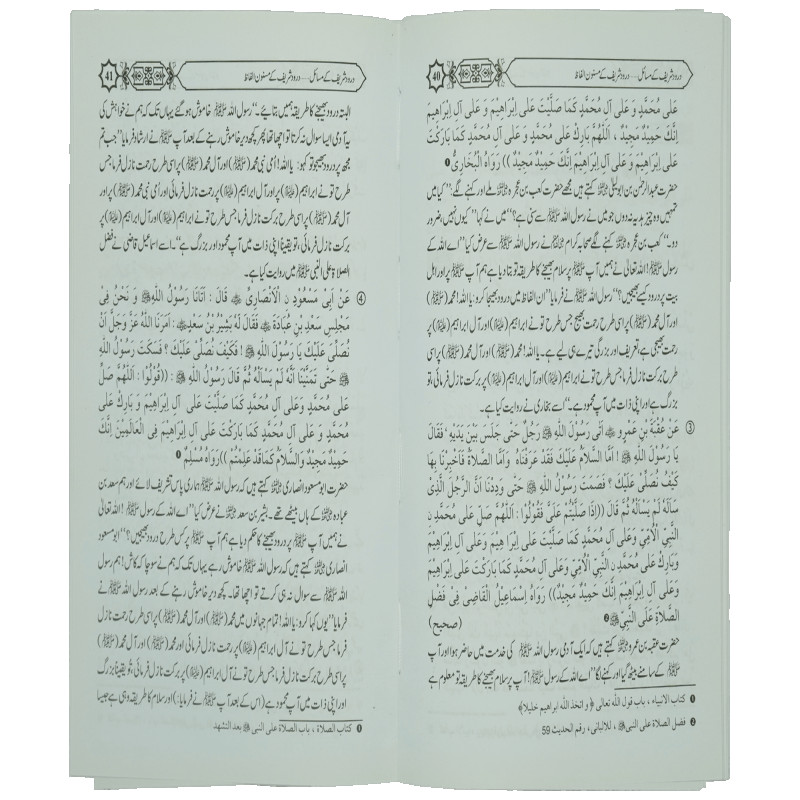 درود شریف کے مسائل ___ درود شریف کے مسنون الفاظ
40
عَلَى مُحَمَّدٍ وَ عَلَى آلِ مُحَمَّدٍ كَمَا صَلَّيْتَ عَلَى إِبْرَاهِيْمَ وَ عَلَى آلِ إِبْرَاهِيْمَ
إِنَّكَ حَمِيْدٌ مَجِيْدٌ ، اَللّٰهُمَّ بَارِكْ عَلَى مُحَمَّدٍ وَ عَلَى آلِ مُحَمَّدٍ كَمَا بَارَكْتَ
عَلَى إِبْرَاهِيْمَ وَ عَلَى آلِ إِبْرَاهِيْمَ إِنَّكَ حَمِيْدٌ مَجِيْدٌ )) رَوَاهُ الْبُخَارِيُّ ❶
حضرت عبدالرحمٰن بن ابو لیلٰی ؓ کہتے ہیں مجھے حضرت کعب بن عجرہ ؓ ملے اور کہنے لگے: ”کیا میں
تمہیں وہ چیز ہدیہ نہ دوں جو میں نے رسول اللہ ﷺ سے سنی ہے؟“ میں نے کہا ”کیوں نہیں! ضرور
دو۔“ کعب بن عجرہ ؓ کہنے لگے صحابہ کرام ؓ نے رسول اللہ ﷺ سے عرض کیا ”اے اللہ کے
رسول ﷺ! اللہ تعالٰی نے ہمیں آپ پر سلام بھیجنے کا طریقہ تو بتا دیا ہے ہم آپ پر اور اہل
بیت پر درود کیسے بھیجیں؟“ رسول اللہ ﷺ نے فرمایا ”ان الفاظ میں درود بھیجا کرو: یا اللہ! محمد (ﷺ)
اور آل محمد (ﷺ) پر اسی طرح رحمت بھیج جس طرح تو نے ابراہیم (علیہ السلام) اور آل ابراہیم (علیہ السلام) پر
رحمت بھیجی ہے، تعریف اور بزرگی تیرے ہی لیے ہے۔ یا اللہ! محمد (ﷺ) اور آل محمد (ﷺ) پر اسی
طرح برکت نازل فرما جس طرح تو نے ابراہیم (علیہ السلام) اور آل ابراہیم (علیہ السلام) پر برکت نازل فرمائی، تو
بزرگ ہے اور اپنی ذات میں آپ محمود ہے۔“ اسے بخاری نے روایت کیا ہے۔
③ عَنْ عُقْبَةَ بْنِ عَمْرٍو ؓ أَتَى رَسُوْلَ اللهِ ﷺ رَجُلٌ حَتَّى جَلَسَ بَيْنَ يَدَيْهِ ؛ فَقَالَ
يَا رَسُوْلَ اللهِ ﷺ ! اَمَّا السَّلَامُ عَلَيْكَ فَقَدْ عَرَفْنَاهُ وَ اَمَّا الصَّلَاةُ فَأَخْبِرْنَا بِهَا
كَيْفَ نُصَلِّيْ عَلَيْكَ ؟ فَصَمَتَ رَسُوْلُ اللهِ ﷺ حَتَّى وَدِدْنَا أَنَّ الرَّجُلَ الَّذِيْ
سَأَلَهُ لَمْ يَسْأَلْهُ ثُمَّ قَالَ ((إِذَا صَلَّيْتُمْ عَلَيَّ فَقُوْلُوْا : اَللّٰهُمَّ صَلِّ عَلَى مُحَمَّدٍ نِ
النَّبِيِّ الْاُمِّيِّ وَ عَلَى آلِ مُحَمَّدٍ كَمَا صَلَّيْتَ عَلَى إِبْرَاهِيْمَ وَ عَلَى آلِ إِبْرَاهِيْمَ
وَ بَارِكْ عَلَى مُحَمَّدٍ نِ النَّبِيِّ الْاُمِّيِّ وَ عَلَى آلِ مُحَمَّدٍ كَمَا بَارَكْتَ عَلَى إِبْرَاهِيْمَ
وَ عَلَى آلِ إِبْرَاهِيْمَ إِنَّكَ حَمِيْدٌ مَجِيْدٌ)) رَوَاهُ إِسْمَاعِيْلُ الْقَاضِيْ فِيْ فَضْلِ
الصَّلَاةِ عَلَى النَّبِيِّ ﷺ ❷ (صحيح)
حضرت عقبہ بن عمرو ؓ کہتے ہیں کہ ایک آدمی رسول اللہ ﷺ کی خدمت میں حاضر ہوا اور آپ
ﷺ کے سامنے بیٹھ گیا اور کہنے لگا ”اے اللہ کے رسول ﷺ! آپ پر سلام بھیجنے کا طریقہ تو معلوم ہے
❶ كتاب الانبياء ، باب قول الله تعالى ﴿ و اتخذ الله ابراهيم خليلا﴾
❷ فضل الصلاة على النبي ﷺ ، للالباني ، رقم الحديث 59
درود شریف کے مسائل ___ درود شریف کے مسنون الفاظ
41
البتہ درود بھیجنے کا طریقہ ہمیں بتائیے۔“ رسول اللہ ﷺ خاموش ہو گئے یہاں تک کہ ہم نے خواہش کی
یہ آدمی ایسا سوال نہ کرتا تو اچھا تھا پھر کچھ دیر خاموش رہنے کے بعد آپ ﷺ نے ارشاد فرمایا ”جب تم
مجھ پر درود بھیجو تو کہو: یا اللہ! اُمی نبی محمد (ﷺ) اور آل محمد (ﷺ) پر اسی طرح رحمت نازل فرما جس
طرح تو نے ابراہیم (علیہ السلام) پر اور آل ابراہیم (علیہ السلام) پر رحمت نازل فرمائی اور اُمی نبی محمد (ﷺ) پر اور
آل محمد (ﷺ) پر اسی طرح برکت نازل فرما جس طرح تو نے ابراہیم (علیہ السلام) اور آل ابراہیم (علیہ السلام) پر
برکت نازل فرمائی، تو یقیناً اپنی ذات میں آپ محمود اور بزرگ ہے“۔ اسے اسماعیل قاضی نے فضل
الصلاۃ علی النبی ﷺ میں روایت کیا ہے۔
④ عَنْ اَبِيْ مَسْعُوْدٍ نِ الْاَنْصَارِيِّ ؓ قَالَ : اَتَانَا رَسُوْلُ اللهِ ﷺ وَ نَحْنُ فِيْ
مَجْلِسِ سَعْدِ بْنِ عُبَادَةَ ؓ فَقَالَ لَهُ بَشِيْرُ بْنُ سَعْدٍ ؓ : اَمَرَنَا اللهُ عَزَّ وَجَلَّ اَنْ
نُصَلِّيَ عَلَيْكَ يَا رَسُوْلَ اللهِ ﷺ ! فَكَيْفَ نُصَلِّيْ عَلَيْكَ ؟ فَسَكَتَ رَسُوْلُ اللهِ
ﷺ حَتَّى تَمَنَّيْنَا أَنَّهُ لَمْ يَسْأَلْهُ ثُمَّ قَالَ رَسُوْلُ اللهِ ﷺ : ((قُوْلُوْا : اَللّٰهُمَّ صَلِّ
عَلَى مُحَمَّدٍ وَعَلَى آلِ مُحَمَّدٍ كَمَا صَلَّيْتَ عَلَى آلِ إِبْرَاهِيْمَ وَ بَارِكْ عَلَى
مُحَمَّدٍ وَ عَلَى آلِ مُحَمَّدٍ كَمَا بَارَكْتَ عَلَى آلِ إِبْرَاهِيْمَ فِي الْعَالَمِيْنَ إِنَّكَ
حَمِيْدٌ مَجِيْدٌ وَالسَّلَامُ كَمَا قَدْ عَلِمْتُمْ)) رَوَاهُ مُسْلِمٌ ❶
حضرت ابو مسعود انصاری ؓ کہتے ہیں کہ رسول اللہ ﷺ ہماری پاس تشریف لائے اور ہم سعد بن
عبادہ ؓ کے ہاں بیٹھے تھے۔ بشیر بن سعد ؓ نے عرض کیا ”اے اللہ کے رسول ﷺ! اللہ تعالٰی
نے ہمیں آپ ﷺ پر درود بھیجنے کا حکم دیا ہے ہم آپ ﷺ پر کس طرح درود بھیجیں؟“ ابو مسعود
انصاری ؓ کہتے ہیں کہ رسول اللہ ﷺ خاموش رہے یہاں تک کہ ہم نے سوچا کہ کاش! ہم رسول
اللہ ﷺ سے سوال نہ ہی کرتے تو اچھا تھا۔ کچھ دیر خاموش رہنے کے بعد رسول اللہ ﷺ نے
فرمایا ”یوں کہا کرو: یا اللہ! تمام جہانوں میں محمد (ﷺ) اور آل محمد (ﷺ) پر اسی طرح رحمت نازل
فرما جس طرح تو نے آل ابراہیم (علیہ السلام) پر رحمت نازل فرمائی اور محمد (ﷺ) اور آل محمد (ﷺ)
پر اسی طرح برکت نازل فرما جس طرح تو نے آل ابراہیم (علیہ السلام) پر برکت نازل فرمائی، تو یقیناً بزرگ
اور اپنی ذات میں آپ محمود ہے (اس کے بعد آپ ﷺ نے فرمایا:) اور سلام کا طریقہ وہی ہے جیسا
❶ كتاب الصلاة ، باب الصلاة على النبي ﷺ بعد التشهد